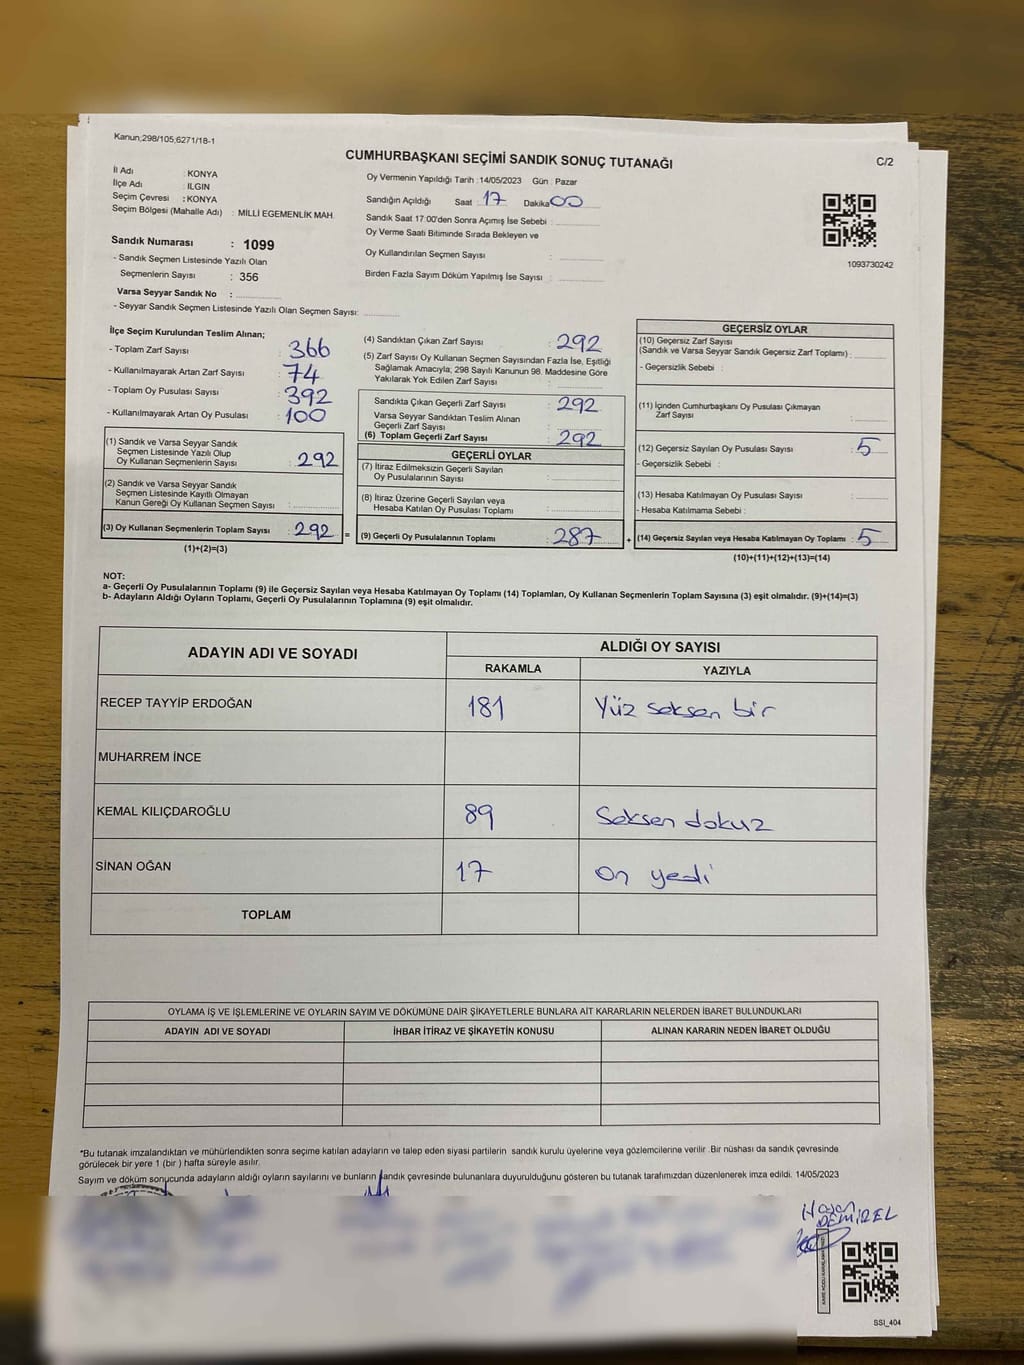 Kanun;298/105;6271/18-1
CUMHURBAŞKANI SEÇİMİ SANDIK SONUÇ TUTANAĞI
C/2
İl Adı : KONYA
İlçe Adı : ILGIN
Seçim Çevresi : KONYA
Seçim Bölgesi (Mahalle Adı) : MİLLİ EGEMENLİK MAH.
Sandık Numarası : 1099
- Sandık Seçmen Listesinde Yazılı Olan
Seçmenlerin Sayısı : 356
Varsa Seyyar Sandık No :
- Seyyar Sandık Seçmen Listesinde Yazılı Olan Seçmen Sayısı:
Oy Vermenin Yapıldığı Tarih :14/05/2023 Gün : Pazar
Sandığın Açıldığı Saat : 17 Dakika 00
Sandık Saat 17:00'den Sonra Açımış İse Sebebi :
Oy Verme Saati Bitiminde Sırada Bekleyen ve
Oy Kullandırılan Seçmen Sayısı :
Birden Fazla Sayım Döküm Yapılmış İse Sayısı :
1093730242
İlçe Seçim Kurulundan Teslim Alınan;
- Toplam Zarf Sayısı : 366
- Kullanılmayarak Artan Zarf Sayısı : 74
- Toplam Oy Pusulası Sayısı : 392
- Kullanılmayarak Artan Oy Pusulası : 100
(1) Sandık ve Varsa Seyyar Sandık
Seçmen Listesinde Yazılı Olup
Oy Kullanan Seçmenlerin Sayısı : 292
(2) Sandık ve Varsa Seyyar Sandık
Seçmen Listesinde Kayıtlı Olmayan
Kanun Gereği Oy Kullanan Seçmen Sayısı :
(3) Oy Kullanan Seçmenlerin Toplam Sayısı : 292 =
(1)+(2)=(3)
(4) Sandıktan Çıkan Zarf Sayısı : 292
(5) Zarf Sayısı Oy Kullanan Seçmen Sayısından Fazla İse, Eşitliği
Sağlamak Amacıyla; 298 Sayılı Kanunun 98. Maddesine Göre
Yakılarak Yok Edilen Zarf Sayısı :
Sandıkta Çıkan Geçerli Zarf Sayısı : 292
Varsa Seyyar Sandıktan Teslim Alınan
Geçerli Zarf Sayısı :
(6) Toplam Geçerli Zarf Sayısı : 292
GEÇERLİ OYLAR
(7) İtiraz Edilmeksizin Geçerli Sayılan
Oy Pusulalarının Sayısı :
(8) İtiraz Üzerine Geçerli Sayılan veya
Hesaba Katılan Oy Pusulaları Toplamı :
(9) Geçerli Oy Pusulalarının Toplamı : 287 +
GEÇERSİZ OYLAR
(10) Geçersiz Zarf Sayısı
(Sandık ve Varsa Seyyar Sandık Geçersiz Zarf Toplamı) :
- Geçersizlik Sebebi :
(11) İçinden Cumhurbaşkanı Oy Pusulası Çıkmayan
Zarf Sayısı :
(12) Geçersiz Sayılan Oy Pusulası Sayısı : 5
- Geçersizlik Sebebi :
(13) Hesaba Katılmayan Oy Pusulası Sayısı :
- Hesaba Katılmama Sebebi :
(14) Geçersiz Sayılan veya Hesaba Katılmayan Oy Toplamı : 5
(10)+(11)+(12)+(13)=(14)
NOT:
a- Geçerli Oy Pusulalarının Toplamı (9) ile Geçersiz Sayılan veya Hesaba Katılmayan Oy Toplamı (14) Toplamları, Oy Kullanan Seçmenlerin Toplam Sayısına (3) eşit olmalıdır. (9)+(14)=(3)
b- Adayların Aldığı Oyların Toplamı, Geçerli Oy Pusulalarının Toplamına (9) eşit olmalıdır.
ADAYIN ADI VE SOYADI
ALDIĞI OY SAYISI
RAKAMLA YAZIYLA
RECEP TAYYİP ERDOĞAN 181 Yüz seksen bir
MUHARREM İNCE
KEMAL KILIÇDAROĞLU 89 Seksen dokuz
SİNAN OĞAN 17 on yedi
TOPLAM
OYLAMA İŞ VE İŞLEMLERİNE VE OYLARIN SAYIM VE DÖKÜMÜNE DAİR ŞİKAYETLERLE BUNLARA AİT KARARLARIN NELERDEN İBARET BULUNDUKLARI
ADAYIN ADI VE SOYADI İHBAR İTİRAZ VE ŞİKAYETİN KONUSU ALINAN KARARIN NEDEN İBARET OLDUĞU
*Bu tutanak imzalandıktan ve mühürlendikten sonra seçime katılan adayların ve talep eden siyasi partilerin sandık kurulu üyelerine veya gözlemcilerine verilir. Bir nüshası da sandık çevresinde
görülecek bir yere 1 (bir ) hafta süreyle asılır.
Sayım ve döküm sonucunda adayların aldığı oyların sayılarını ve bunların sandık çevresinde bulunanlara duyurulduğunu gösteren bu tutanak tarafımızdan düzenlenerek imza edildi. 14/05/2023
Hasan
DEMİREL
SSI_404